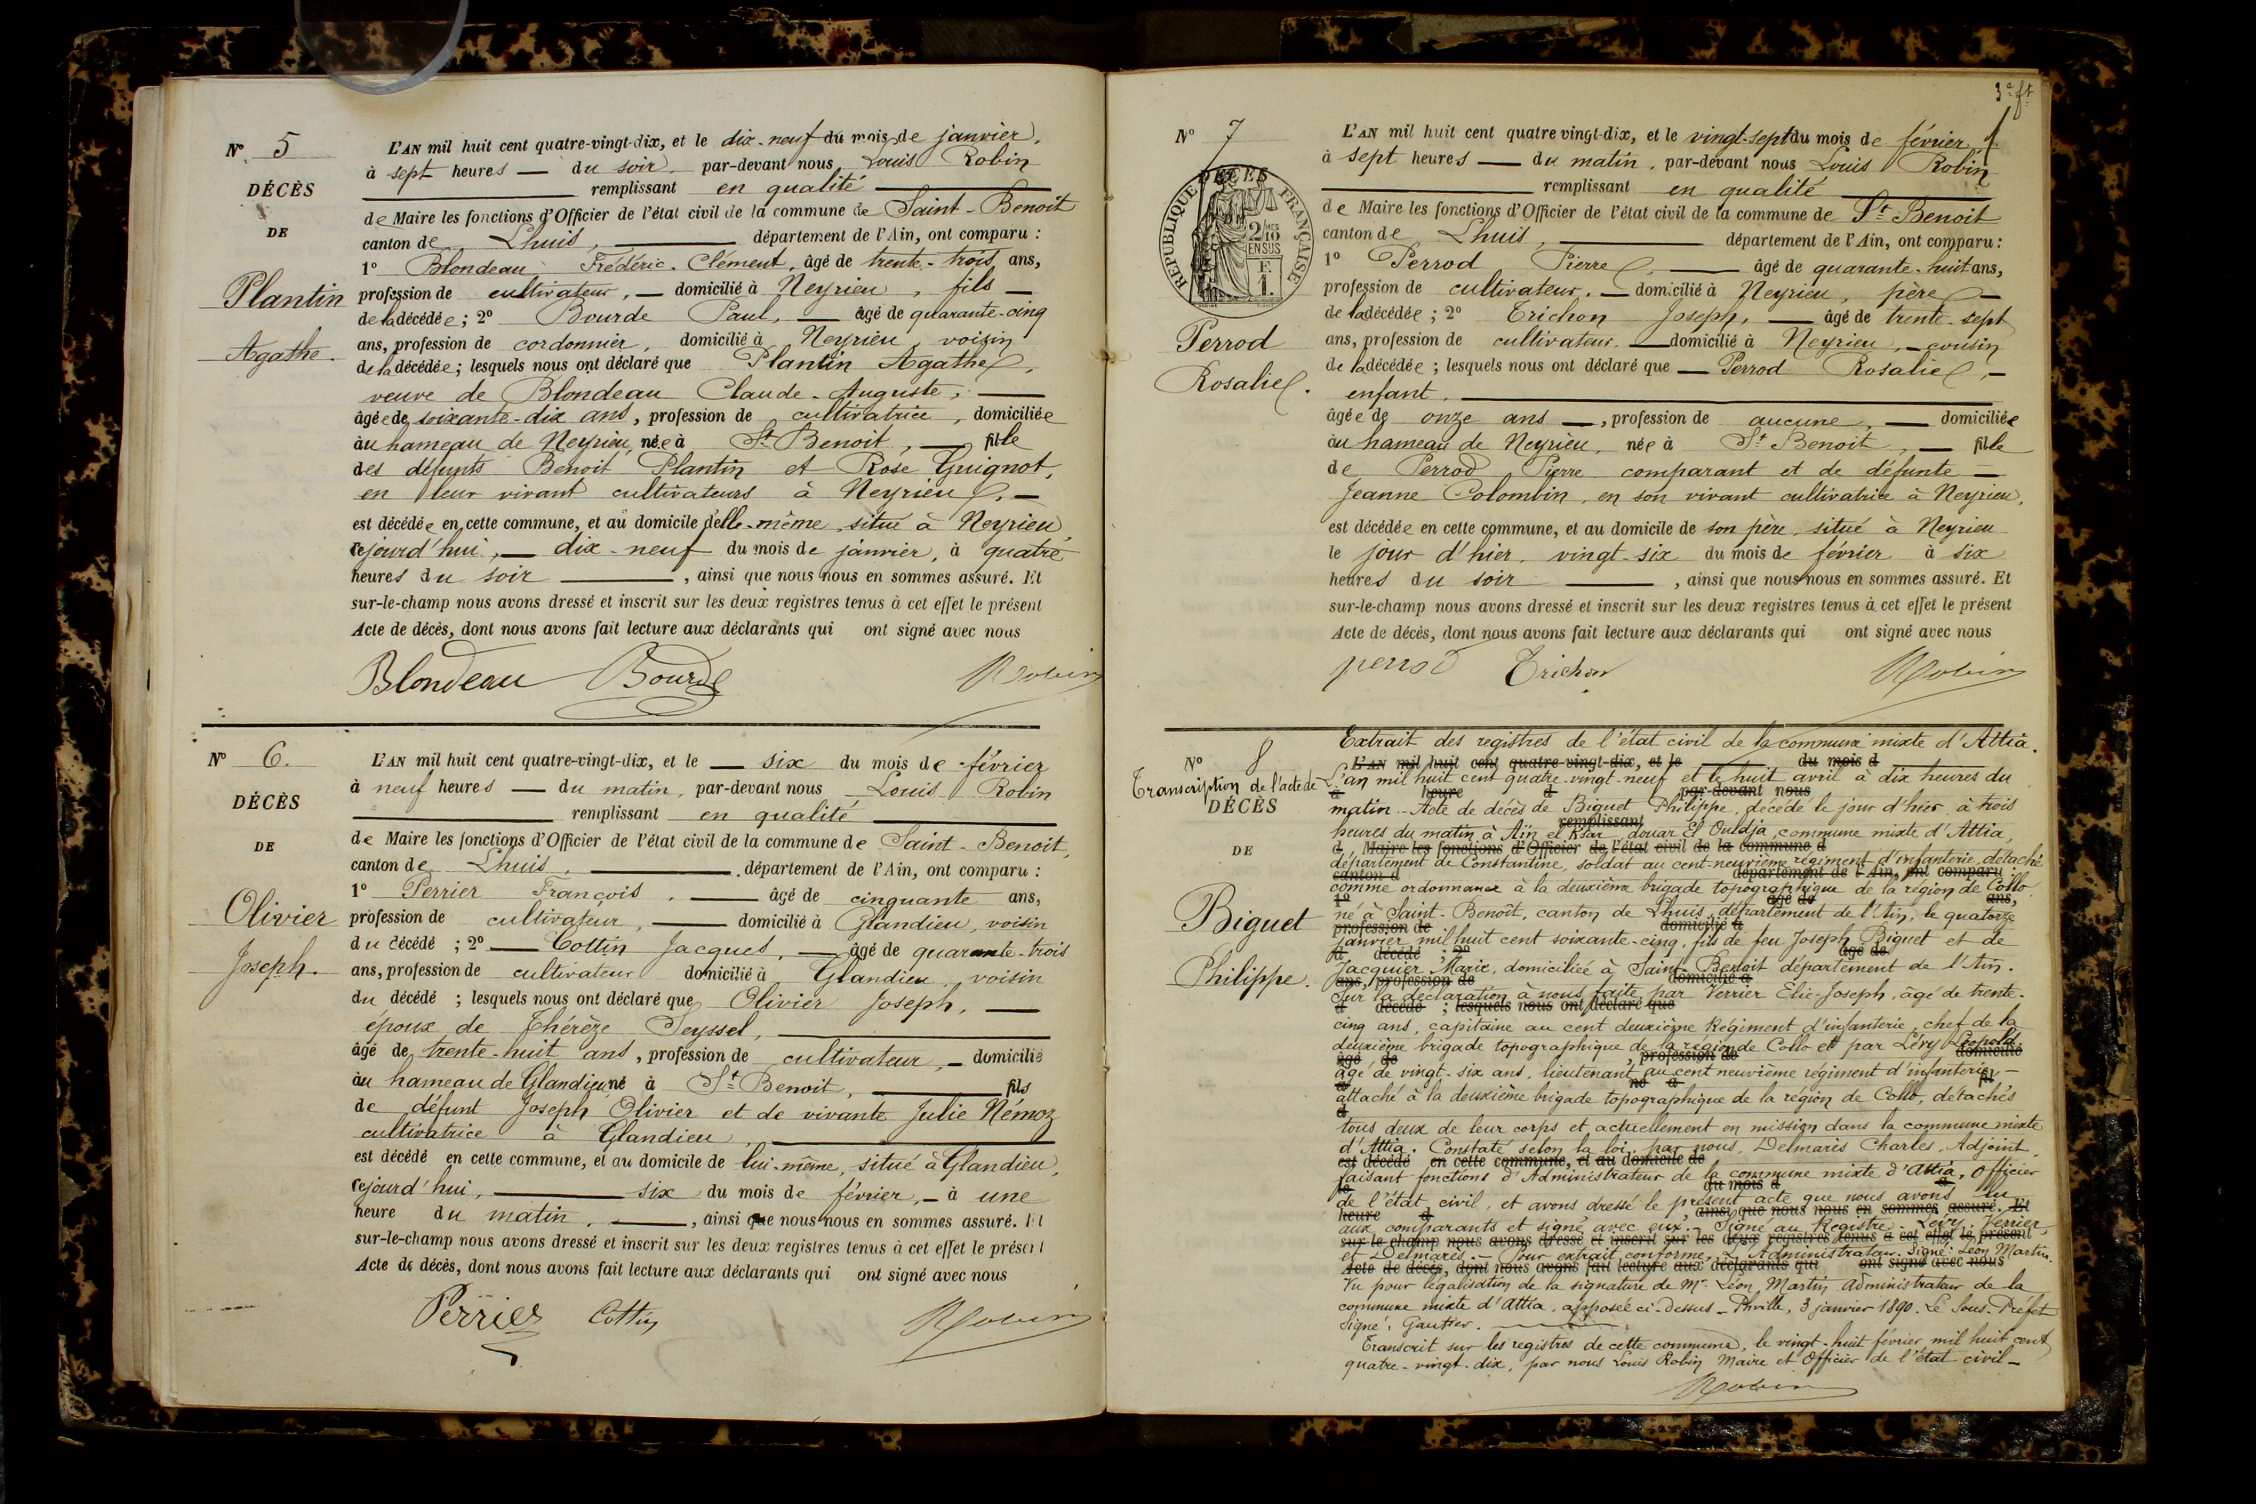 Nº 5
DÉCÈS
DE
Plantin
Agathe.
L'AN mil huit cent quatre-vingt-dix, et le dix-neuf du mois de janvier,
à sept heures — du soir, par-devant nous Louis Robin
remplissant en qualité
de Maire les fonctions d'Officier de l'état civil de la commune de Saint-Benoit
canton de Lhuis, département de l'Ain, ont comparu :
1º Blondeau Frédéric-Clément, âgé de trente-trois ans,
profession de cultivateur, — domicilié à Neyrieu, fils —
de la décédée ; 2º Bourde Paul, — âgé de quarante-cinq
ans, profession de cordonnier, domicilié à Neyrieu, voisin
de la décédée ; lesquels nous ont déclaré que Plantin Agathe,
veuve de Blondeau Claude-Auguste, —
âgée de soixante-dix ans, profession de cultivatrice, domiciliée
au hameau de Neyrieu, née à St Benoit, — fille
des défunts Benoit Plantin et Rose Guignot,
en leur vivant cultivateurs à Neyrieu, —
est décédée en cette commune, et au domicile d'elle-même, situé à Neyrieu,
cejourd'hui, — dix-neuf du mois de janvier, à quatre
heures du soir —, ainsi que nous nous en sommes assuré. Et
sur-le-champ nous avons dressé et inscrit sur les deux registres tenus à cet effet le présent
Acte de décès, dont nous avons fait lecture aux déclarants qui ont signé avec nous
Blondeau Bourde Robin
Nº 6.
DÉCÈS
DE
Olivier
Joseph.
L'AN mil huit cent quatre-vingt-dix, et le — six du mois de février
à neuf heures — du matin, par-devant nous Louis Robin
remplissant en qualité
de Maire les fonctions d'Officier de l'état civil de la commune de Saint-Benoit,
canton de Lhuis, département de l'Ain, ont comparu :
1º Perrier François, — âgé de cinquante ans,
profession de cultivateur, — domicilié à Glandieu, voisin
du décédé ; 2º — Cottin Jacques, — âgé de quarante-trois
ans, profession de cultivateur domicilié à Glandieu, voisin
du décédé ; lesquels nous ont déclaré que Olivier Joseph, —
époux de Thérèze Seyssel,
âgé de trente-huit ans, profession de cultivateur, — domicilié
au hameau de Glandieu, né à St Benoit, — fils
de défunt Joseph Olivier et de vivante Julie Némoz
cultivatrice à Glandieu,
est décédé en cette commune, et au domicile de lui-même, situé à Glandieu,
cejourd'hui, — six du mois de février, — à une
heure du matin, —, ainsi que nous nous en sommes assuré. Et
sur-le-champ nous avons dressé et inscrit sur les deux registres tenus à cet effet le présent
Acte de décès, dont nous avons fait lecture aux déclarants qui ont signé avec nous
Perrier Cottin Robin
3e ft
Nº 7
DÉCÈS
RÉPUBLIQUE FRANÇAISE
2/10 EN SUS
F. 1.
Perrod
Rosalie.
L'AN mil huit cent quatre vingt-dix, et le vingt-sept du mois de février,
à sept heures — du matin, par-devant nous Louis Robin
remplissant en qualité
de Maire les fonctions d'Officier de l'état civil de la commune de St Benoit
canton de Lhuis, département de l'Ain, ont comparu :
1º Perrod Pierre, — âgé de quarante-huit ans,
profession de cultivateur, — domicilié à Neyrieu, père —
de la décédée ; 2º Trichon Joseph, — âgé de trente-sept
ans, profession de cultivateur, — domicilié à Neyrieu, — cousin
de la décédée ; lesquels nous ont déclaré que — Perrod Rosalie, —
enfant,
âgée de onze ans —, profession de aucune, — domiciliée
au hameau de Neyrieu, née à St Benoit, — fille
de Perrod Pierre comparant et de défunte —
Jeanne Colombin, en son vivant cultivatrice à Neyrieu,
est décédée en cette commune, et au domicile de son père, situé à Neyrieu
le jour d'hier, vingt-six du mois de février à six
heures du soir —, ainsi que nous nous en sommes assuré. Et
sur-le-champ nous avons dressé et inscrit sur les deux registres tenus à cet effet le présent
Acte de décès, dont nous avons fait lecture aux déclarants qui ont signé avec nous
perrod Trichon Robin
Nº 8
Transcription de l'acte de
DÉCÈS
DE
Biguet
Philippe.
Extrait des registres de l'état civil de la commune mixte d'Attia.
L'AN mil huit cent quatre-vingt-dix, et le du mois d
L'an mil huit cent quatre-vingt-neuf et le huit avril à dix heures du
à heure d par-devant nous
matin. Acte de décès de Biguet Philippe, décédé le jour d'hier, à trois
remplissant
heures du matin à Aïn el Ksar douar El Ouldja, commune mixte d'Attia,
d Maire les fonctions d'Officier de l'état civil de la commune d
département de Constantine, soldat au cent-neuvième régiment d'infanterie, détaché
canton d département de l'Ain, ont comparu :
comme ordonnance à la deuxième brigade topographique de la région de Collo
1º âgé de ans,
né à Saint-Benoît, canton de Lhuis, département de l'Ain, le quatorze
profession de domicilié à
janvier mil huit cent soixante-cinq, fils de feu Joseph Biguet et de
d décédé ; 2º âgé de
Jacquier Marie, domiciliée à Saint-Benoit département de l'Ain.
ans, profession de domicilié à
Sur la déclaration à nous faite par Verrier Elie-Joseph, âgé de trente-
d décédé ; lesquels nous ont déclaré que
cinq ans, capitaine au cent deuxième Régiment d'infanterie, chef de la
deuxième brigade topographique de la région de Collo et par Lévy Léopold,
âgé de , profession de domicilié
âgé de vingt-six ans, lieutenant au cent neuvième régiment d'infanterie —
à né à fil
attaché à la deuxième brigade topographique de la région de Collo, détachés
d
tous deux de leur corps et actuellement en mission dans la commune mixte
d'Attia. Constaté selon la loi, par nous, Delmarès Charles, Adjoint,
est décédé en cette commune, et au domicile de
faisant fonctions d'Administrateur de la commune mixte d'Attia, Officier
le du mois d à
de l'état civil, et avons dressé le présent acte que nous avons lu
heure d ainsi que nous nous en sommes assuré. Et
aux comparants et signé avec eux. — Signé au Registre. Lévy. Verrier,
sur le champ nous avons dressé et inscrit sur les deux registres tenus à cet effet le présent
et Delmarès. — Pour extrait conforme, L'Administrateur. Signé : Léon Martin.
Acte de décès, dont nous avons fait lecture aux déclarants qui ont signé avec nous
Vu pour légalisation de la signature de Mr Léon Martin Administrateur de la
commune mixte d'Attia, apposée ci-dessus — Phville, 3 janvier 1890. Le Sous-Préfet
Signé : Gautier.
Transcrit sur les registres de cette commune, le vingt-huit février mil huit cent
quatre-vingt-dix, par nous Louis Robin Maire et Officier de l'état civil —
Robin